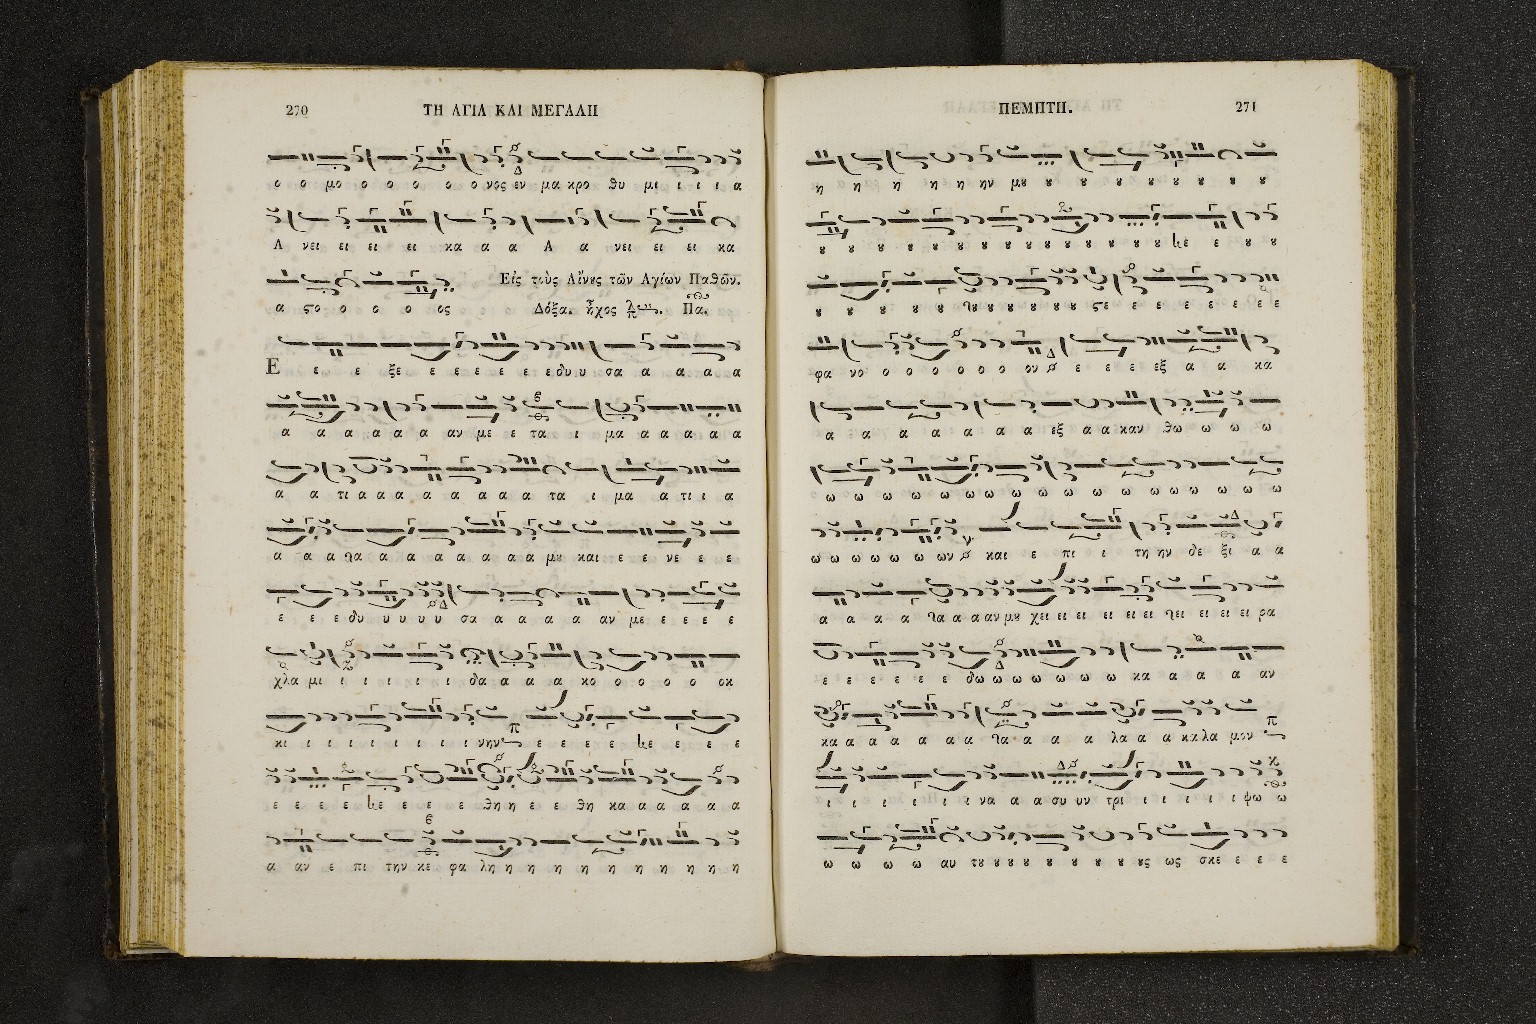 270 ΤΗ ΑΓΙΑ ΚΑΙ ΜΕΓΑΛΗ
ο ο μο ο ο ο ο ο νος εν μα κρο θυ μι ι ι ι α
Α νει ει ει ει κα α α Α α νει ει ει κα
α ϛο ο ο ο ος Εἰς τοὺς Αἴνȣς τῶν Αγίων Παθῶν.
Δόξα. ἦχος Πα.
Ε ε ε ξε ε ε ε ε ε εδυ υ σα α α α α
α α α α α α αν με ε τα ι μα α α α α α
α α τι α α α α α α α α τα ι μα α τι ι α
α α α α α α α α α α α μȣ και ε ε νε ε ε
ε ε ε δυ υ υ υ υ σα α α α α αν με ε ε ε ε
χλα μι ι ι ι ι ι δα α α α κο ο ο ο ο οκ
κι ι ι ι ι ι ι ι ι νην ε ε ε ε ε ε ε ε
ε ε ε ε ε ε ε ε θη η ε ε θη κα α α α α α
α αν ε πι την κε φα λη η η η η η η η η η
ΠΕΜΠΤΗ. 271
η η η η η ην μȣ ȣ ȣ ȣ ȣ ȣ ȣ ȣ ȣ
ȣ ȣ ȣ ȣ ȣ ȣ ȣ ȣ ȣ ȣ ȣ ȣ ȣ ȣ ȣ ε ε ȣ ȣ
ȣ ȣ ȣ ȣ ȣ ȣ ȣ ȣ ȣ ȣ ϛε ε ε ε ε ε ε ε
φα νο ο ο ο ο ο ο ον ε ε ε εξ α α κα
α α α α α α α εξ α α καν θω ω ω ω
ω ω ω ω ω ω ω ω ω ω ω ω ω ω ω ω ω
ω ω ω ω ω ω ων και ε πι ι τη ην δε ξι α α
α α α α α α α αν μȣ χει ει ει ει ει ει ει ει ει ει ρα
ε ε ε ε ε ε δω ω ω ω ω ω ω κα α α α αν
κα α α α α α α α α α α λα α α κα λα μον
ι ι ι ι ι ι να α α συ υν τρι ι ι ι ι ι ψω ω
ω ω ω ω αυ τȣ ȣ ȣ ȣ ȣ ȣ ȣ ȣ ȣς ως σκε ε ε ε